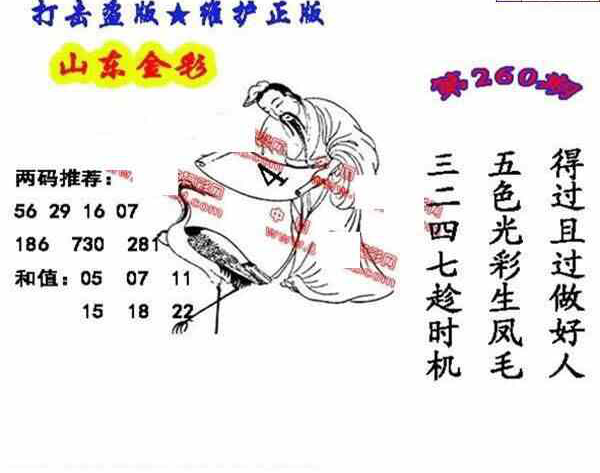 打击盗版★维护正版
山东金彩
第260期
两码推荐：
56 29 16 07
186 730 281
和值：05 07 11
15 18 22
4
得过且过做好人
五色光彩生凤毛
三二四七趁时机